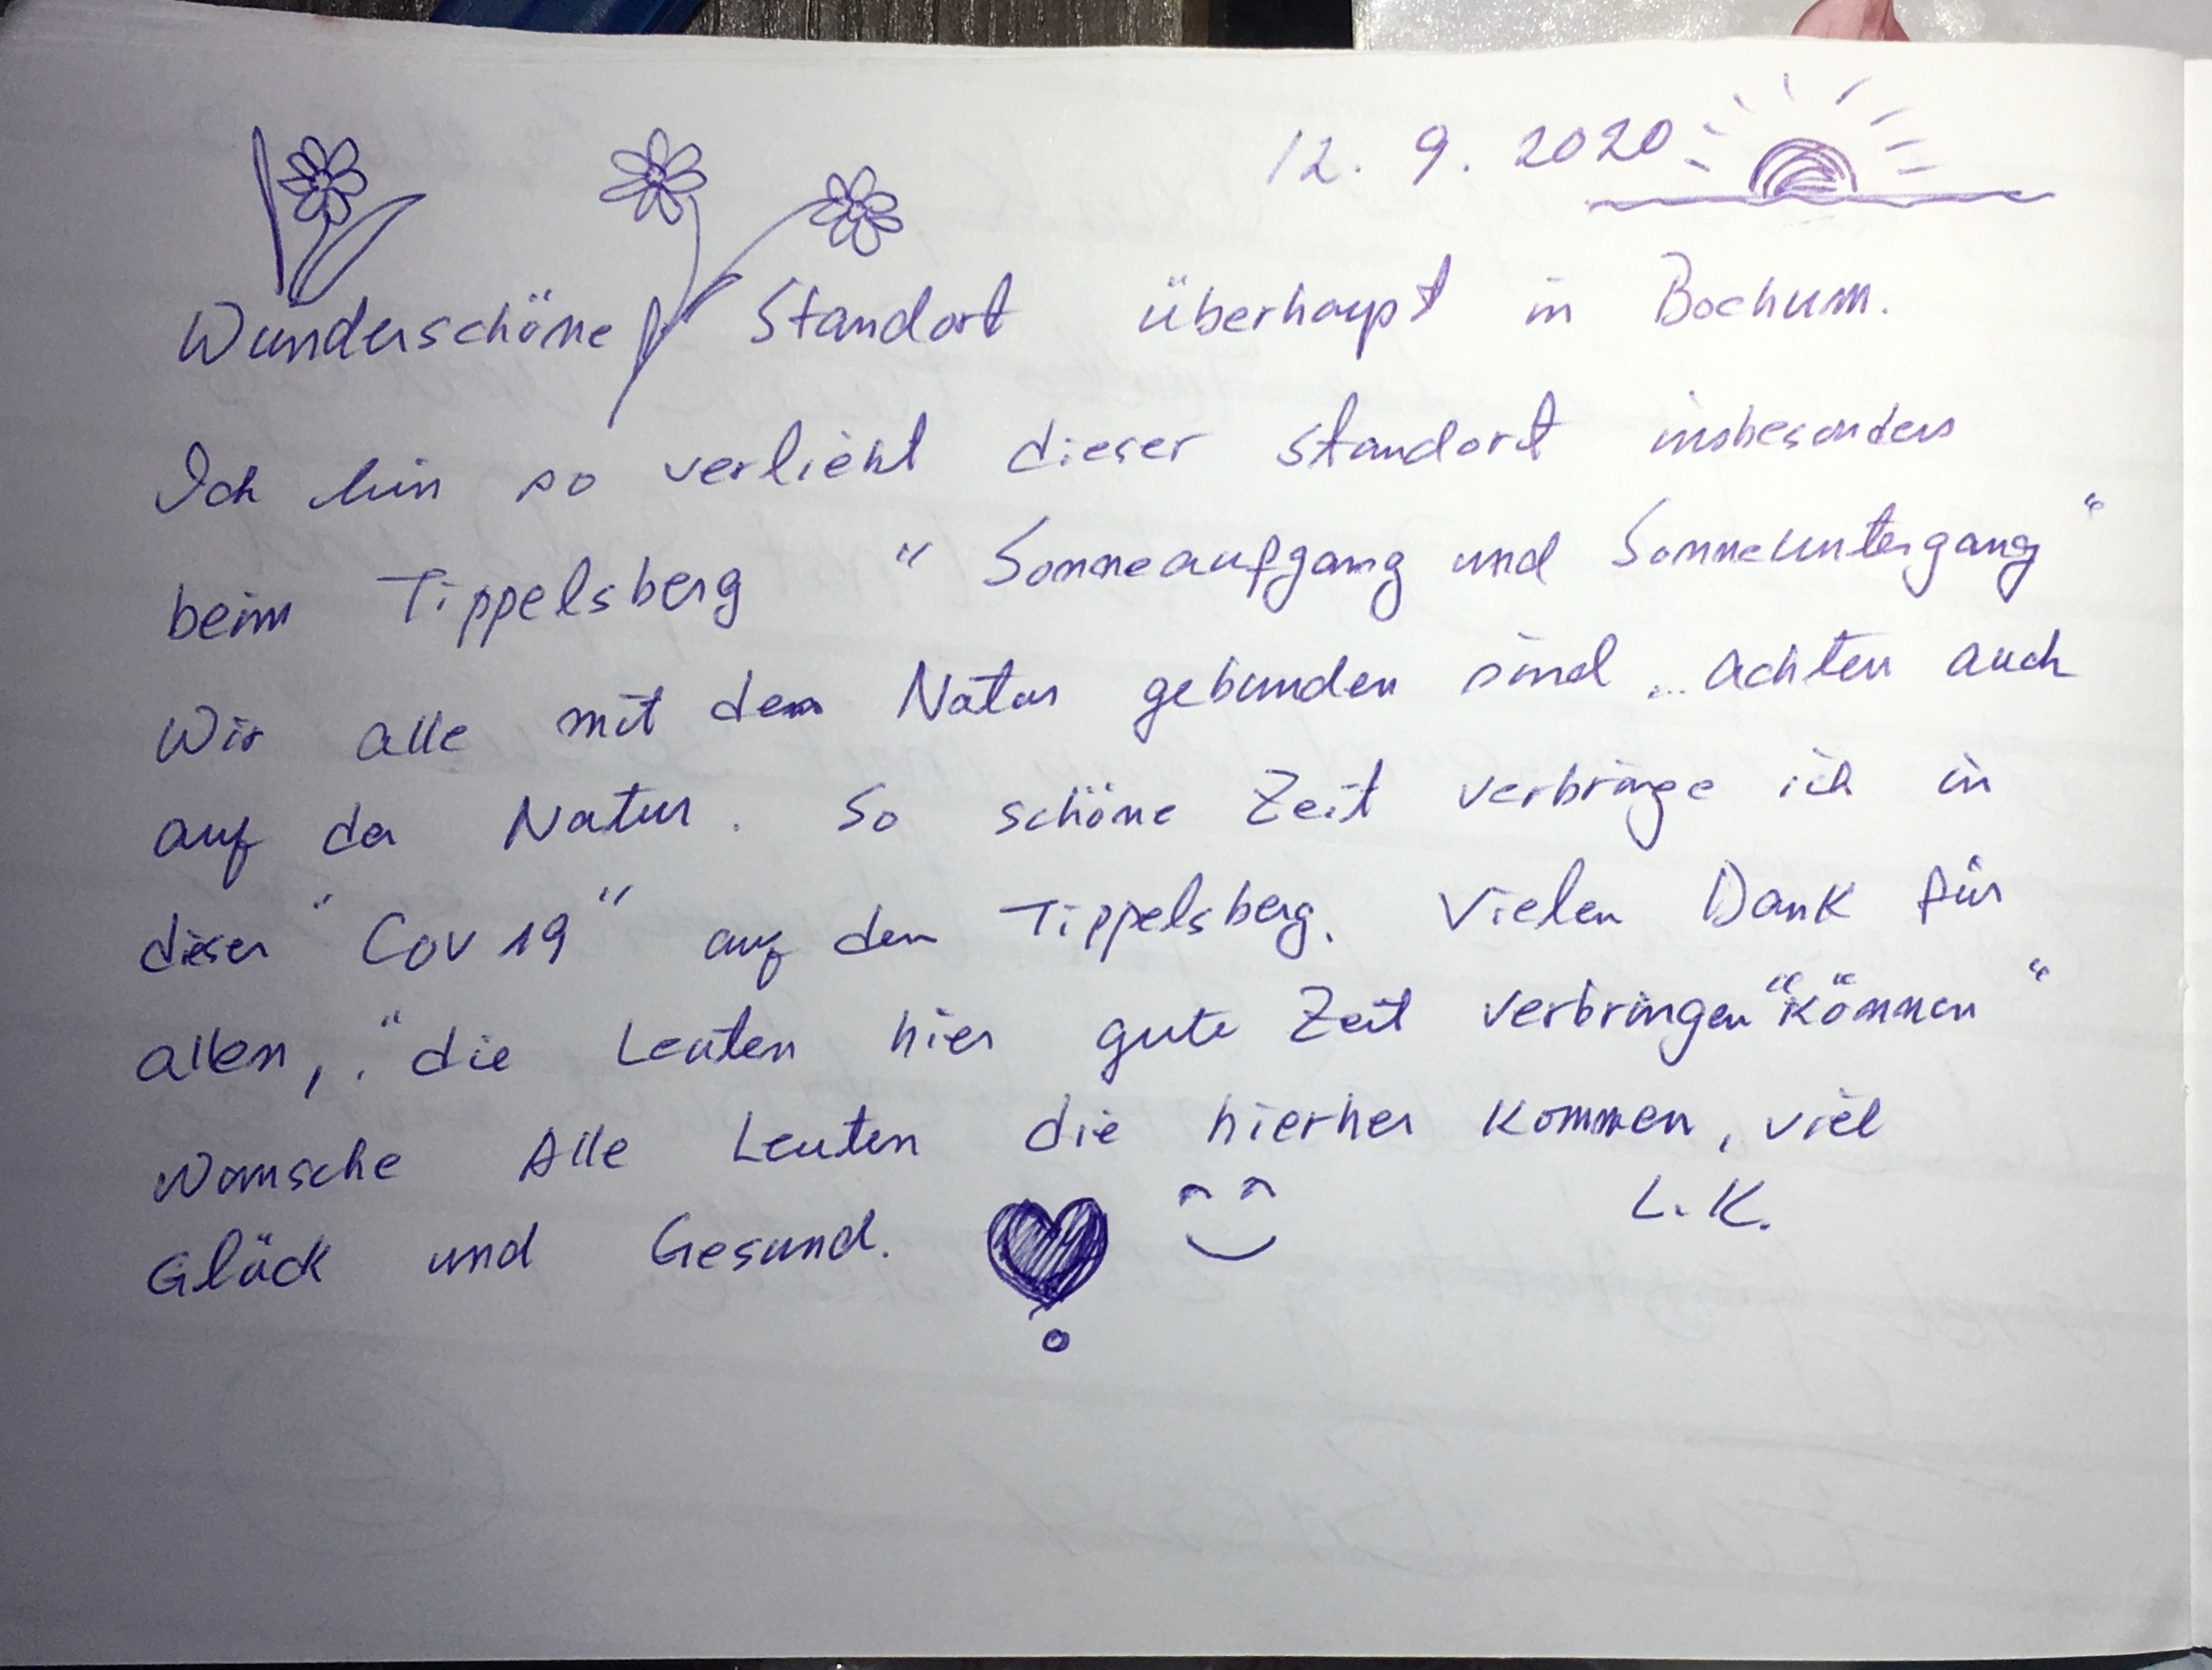 12. 9. 2020
Wunderschöne Standort überhaupt in Bochum.
Ich bin so verliebt dieser Standort insbesonders
beim Tippelsberg "Sonneaufgang und Sonneuntergang"
Wir alle mit den Natur gebunden sind .. achten auch
auf der Natur. So schöne Zeit verbringe ich in
dieser "Cov 19" auf den Tippelsberg. Vielen Dank für
allen, "die Leuten hier gute Zeit verbringen "können"
Wonsche Alle Leuten die hierher kommen, viel
Glück und Gesund.
L.K.